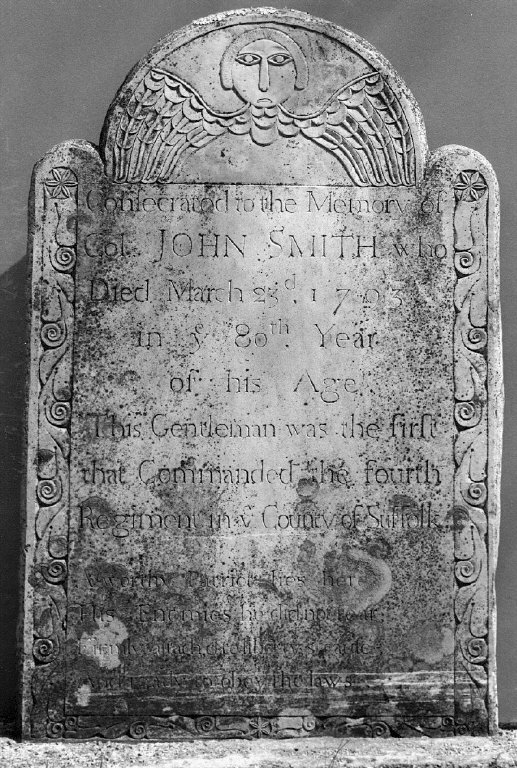 Consecrated to the Memory of
Col. JOHN SMITH who
Died March 23d. 1793
in ye 80th. Year
of his Age
This Gentleman was the firſt
that Commanded the fourth
Regiment in ye County of Suffolk
A worthy Patriot lies here
His Enemies he did not fear
Firmly attach'd to liberty's cauſe
And ready to obey the laws